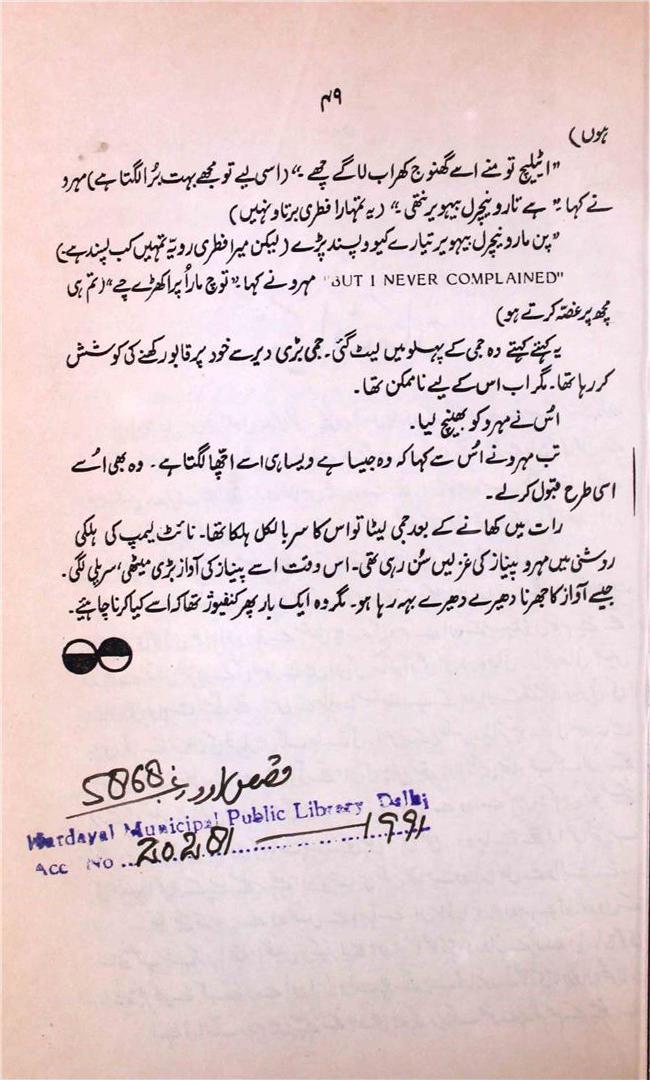 ۴۹
ہوں)
"اٹیلیچ تو منے اسے گھنوج کھراب لاگے چھے۔" (اسی لیے تو مجھے بہت بُرا لگتا ہے) مہرو
نے کہا۔" ہے تارو نیچرل بیہویر نتھی۔" (یہ تمہارا فطری برتاو نہیں)
"پن مارو نیچرل بیہویر تیارے کیو و پسند پڑے (لیکن میرا فطری رویہ تمہیں کب پسند ہے۔)
"BUT I NEVER COMPLAINED" مہرو نے کہا۔" توچ مارا پر اکھڑے چے" (تم ہی
مجھ پر غصّہ کرتے ہو)
یہ کہتے کہتے وہ جمی کے پہلو میں لیٹ گئی۔ جمی بڑی دیر سے خود پر قابو رکھنے کی کوشش
کر رہا تھا۔ مگر اب اس کے لیے ناممکن تھا۔
اُس نے مہرو کو بھینچ لیا۔
تب مہرو نے اُس سے کہا کہ وہ جیسا ہے ویسا ہی اسے اچھا لگتا ہے۔ وہ بھی اُسے
اسی طرح قبول کرلے۔
رات میں کھانے کے بعد جمی لیٹا تو اس کا سر بالکل ہلکا تھا۔ نائٹ لیمپ کی ہلکی
روشنی میں مہرو پیناز کی غزلیں سُن رہی تھی۔ اس وقت اسے پیناز کی آواز بڑی میٹھی، سریلی لگی۔
جیسے آواز کا جھرنا دھیرے دھیرے بہہ رہا ہو۔ مگر وہ ایک بار پھر کنفیوژ تھا کہ اسے کیا کرنا چاہیئے۔
قصص اردو
5868
Hardayal Municipal Public Library, Delhi
Acc No 20281 1991